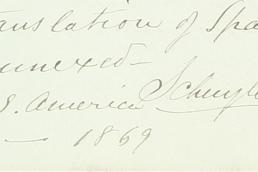 anslation of Spa
nnexed —
S. America Schuyle
— 1869